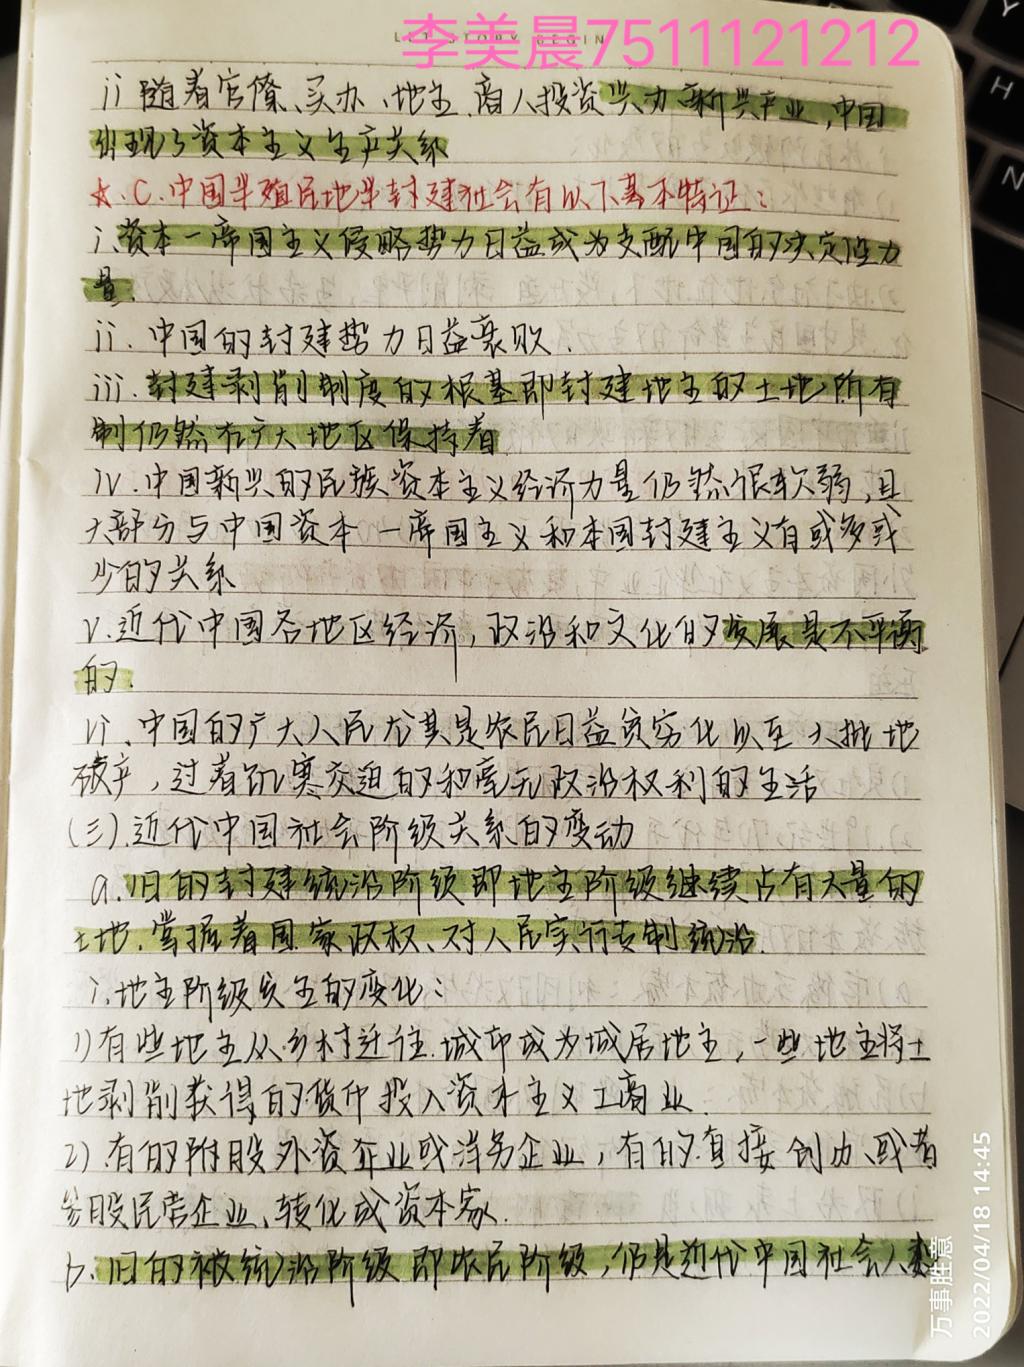 李美晨7511121212
LET STORY BEGIN
ii 随着官僚、买办、地主、商人投资兴办新兴产业,中国
出现了资本主义生产关系
☆.C.中国半殖民地半封建社会有以下基本特证:
i.资本一帝国主义侵略势力日益成为支配中国的决定性力
量.
ii.中国的封建势力日益衰败.
iii.封建剥削制度的根基即封建地主的土地所有
制仍然在广大地区保持着
iv.中国新兴的民族资本主义经济力量仍然很软弱,且
大部分与中国资本一帝国主义和本国封建主义有或多或
少的关系
v.近代中国各地区经济,政治和文化的发展是不平衡
的.
vi、中国的广大人民尤其是农民日益贫穷化以至大批地
破产,过着饥寒交迫的和毫无政治权利的生活
(三).近代中国社会阶级关系的变动
a.旧的封建统治阶级即地主阶级继续占有大量的
土地、掌握着国家政权、对人民实行专制统治.
i、地主阶级发生的变化:
1)有些地主从乡村迁往城市成为城居地主,一些地主将土
地剥削获得的货币投入资本主义工商业.
2).有的附股外资企业或洋务企业,有的直接创办、或者
参股民营企业、转化成资本家.
b.旧的被统治阶级即农民阶级,仍是近代中国社会人数
万事胜意
2022/04/18 14:45
Y
H
N